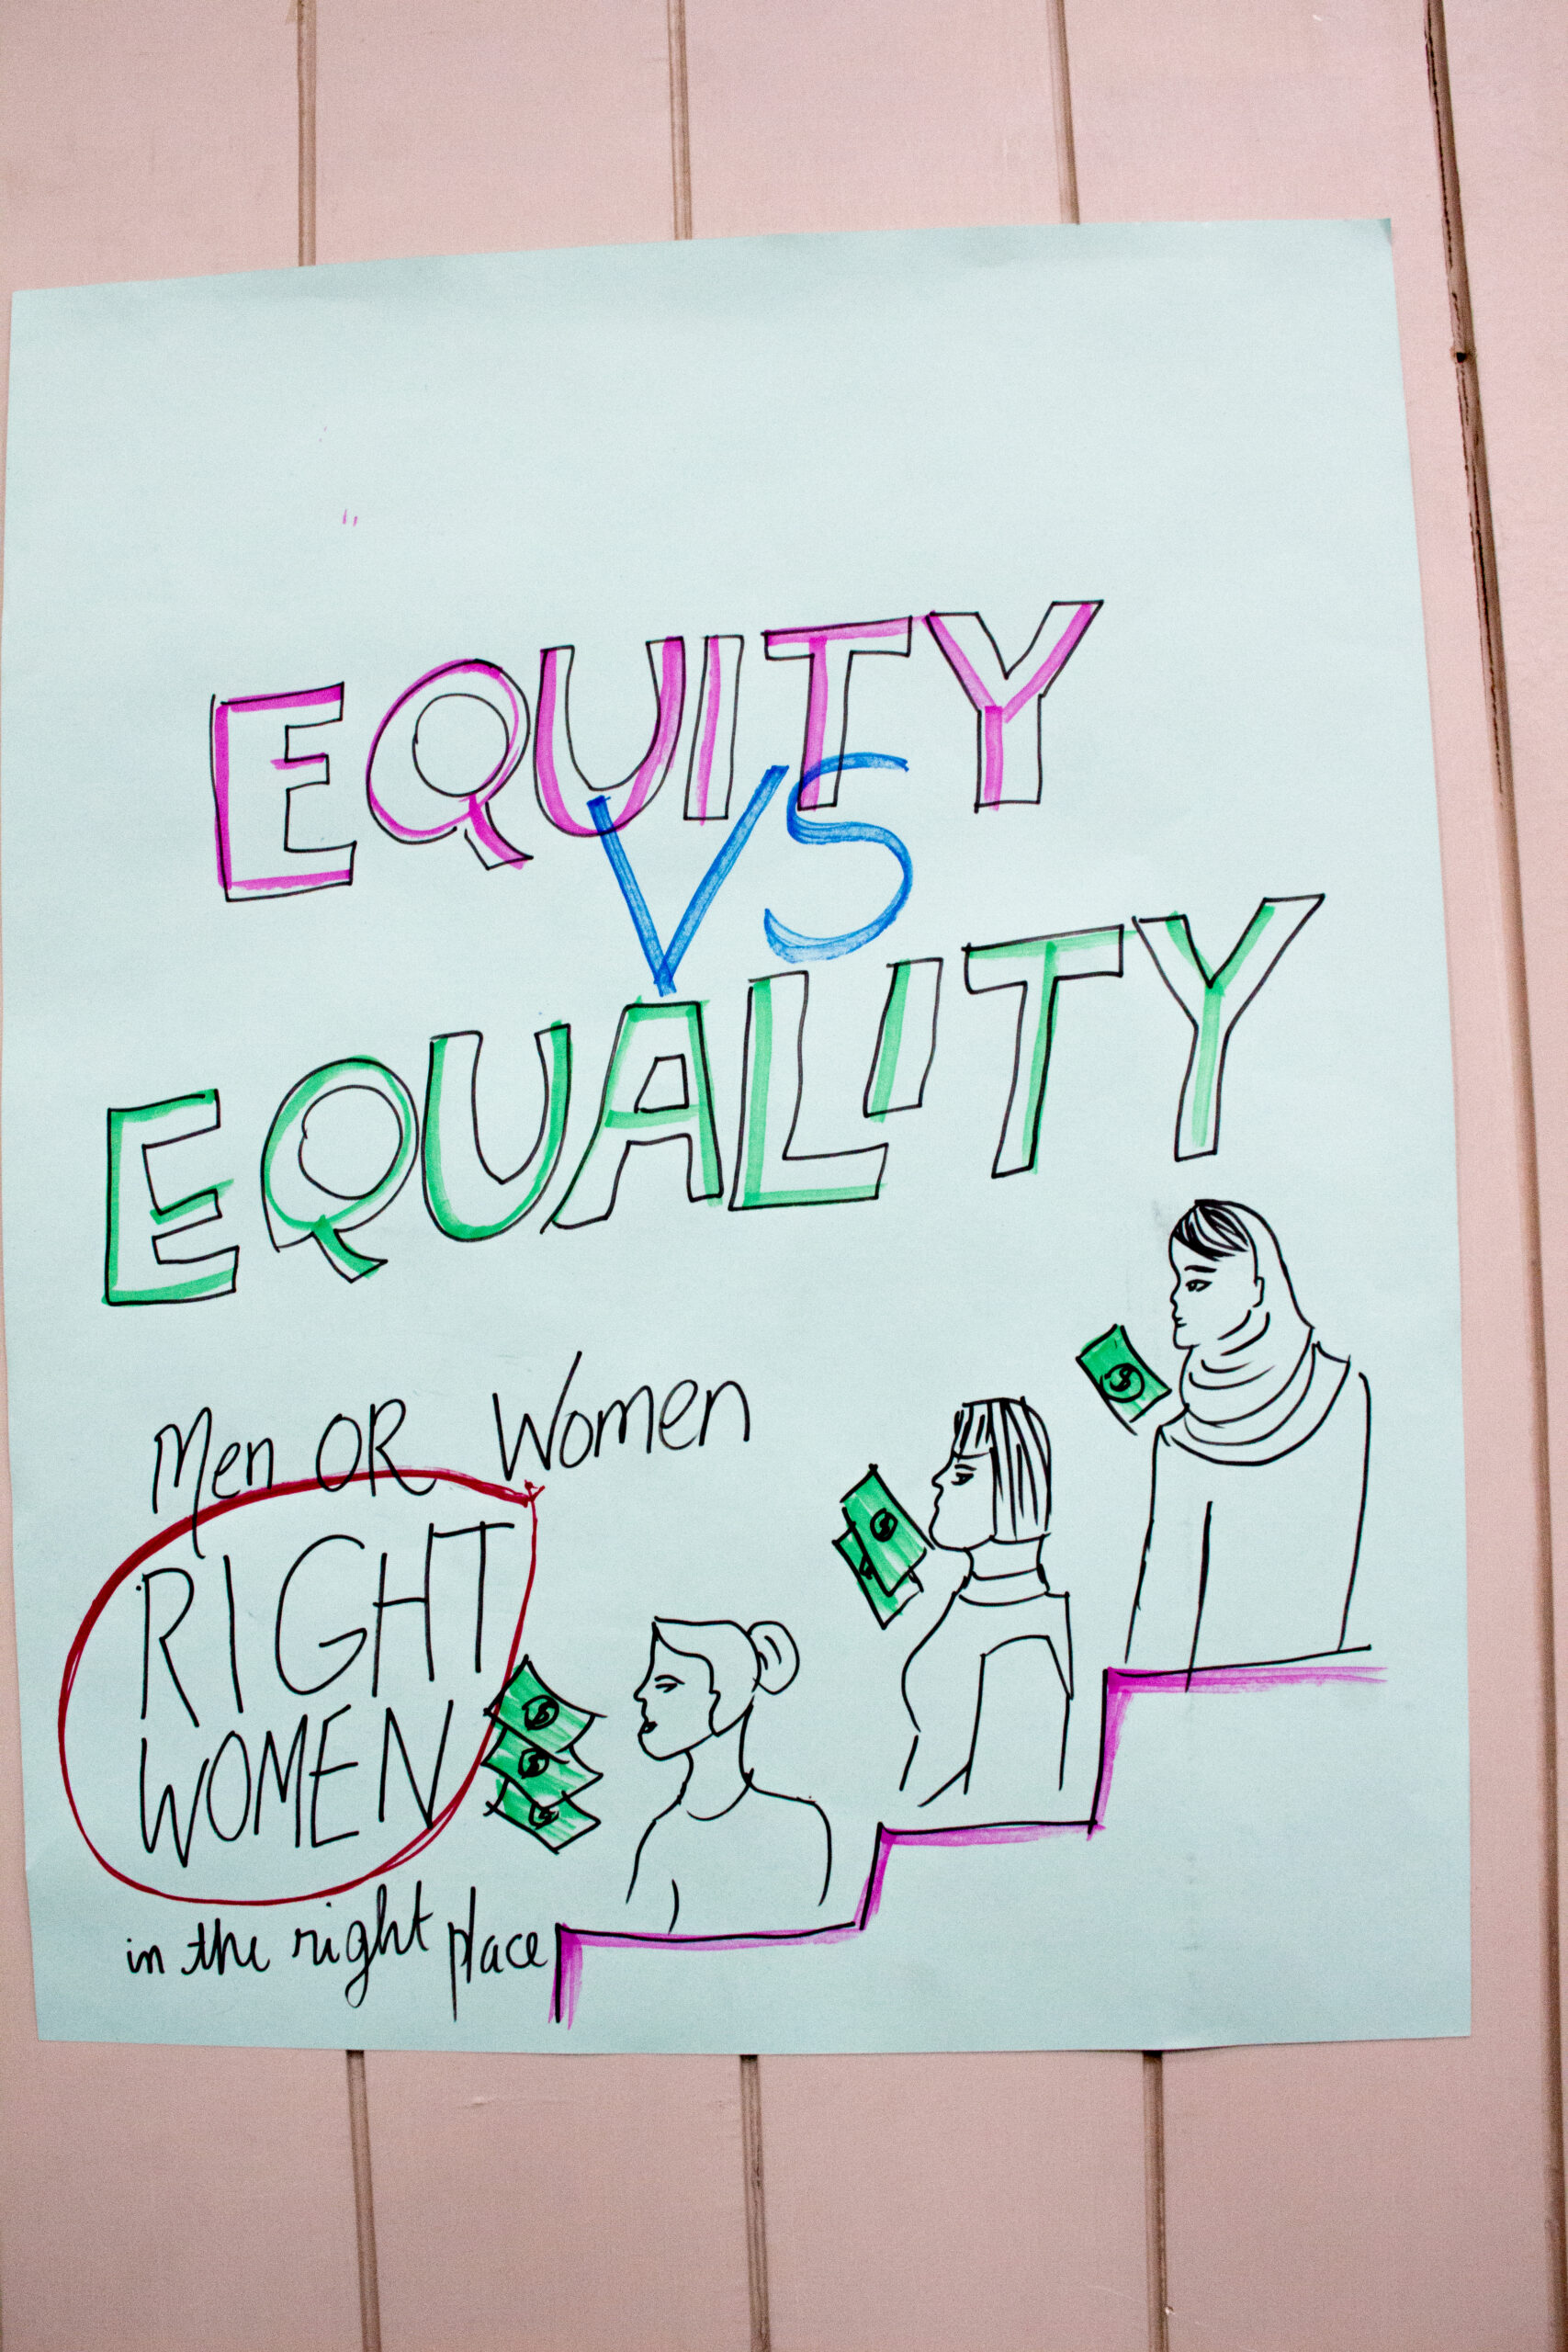 EQUITY
VS
EQUALITY
Men OR Women
RIGHT
WOMEN
in the right place